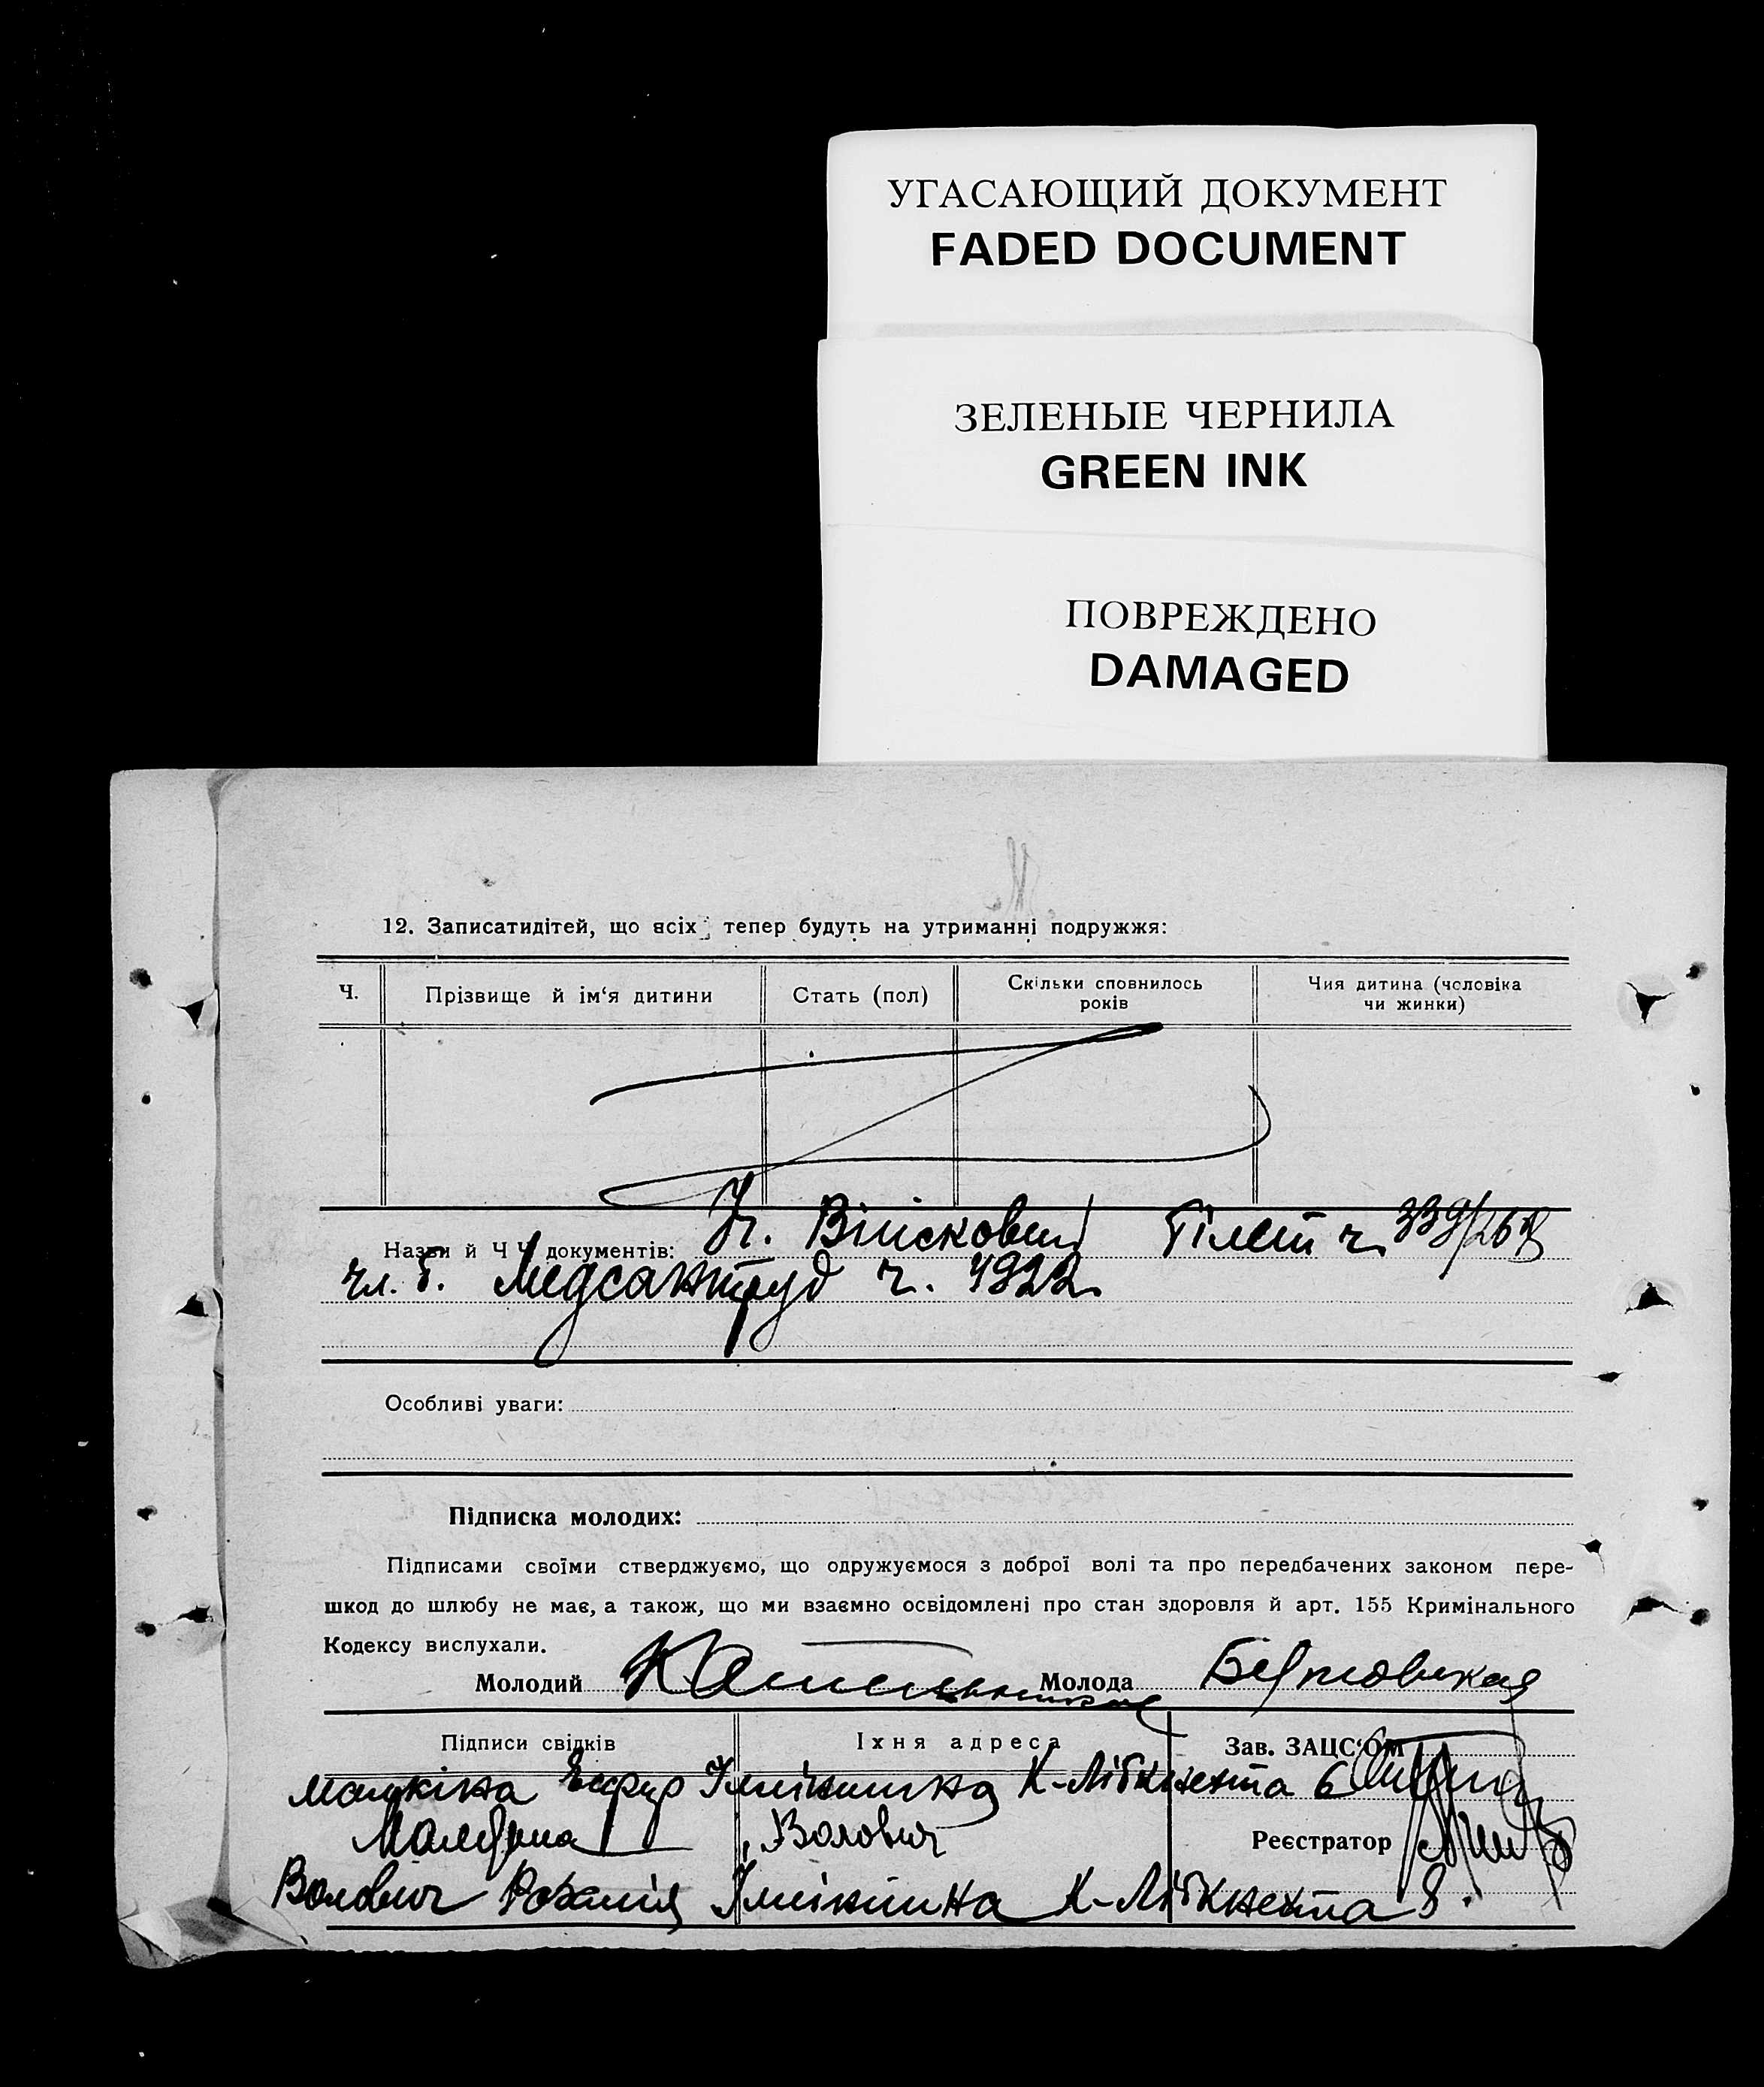 УГАСАЮЩИЙ ДОКУМЕНТ
FADED DOCUMENT
ЗЕЛЕНЫЕ ЧЕРНИЛА
GREEN INK
ПОВРЕЖДЕНО
DAMAGED
12. Записатидітей, що всіх тепер будуть на утриманні подружжя:
Ч.
Прізвище й ім‘я дитини
Стать (пол)
Скільки сповнилось років
Чия дитина (чоловіка чи жинки)
Назви й Ч Ч документів: Військовий білет ч.
чл. б. Медсантруд ч. 4922
Особливі уваги:
Підписка молодих:
Підписами своїми стверджуємо, що одружуємося з доброї волі та про передбачених законом пере-
шкод до шлюбу не має, а також, що ми взаємно освідомлені про стан здоровля й арт. 155 Кримінального
Кодексу вислухали.
Молодий
Молода
Підписи свідків
Їхня адреса
Зав. ЗАЦС‘ОМ
К-Лібкнехта 6
Волович
Реєстратор
Волович Розалія К-Лібкнехта 8.